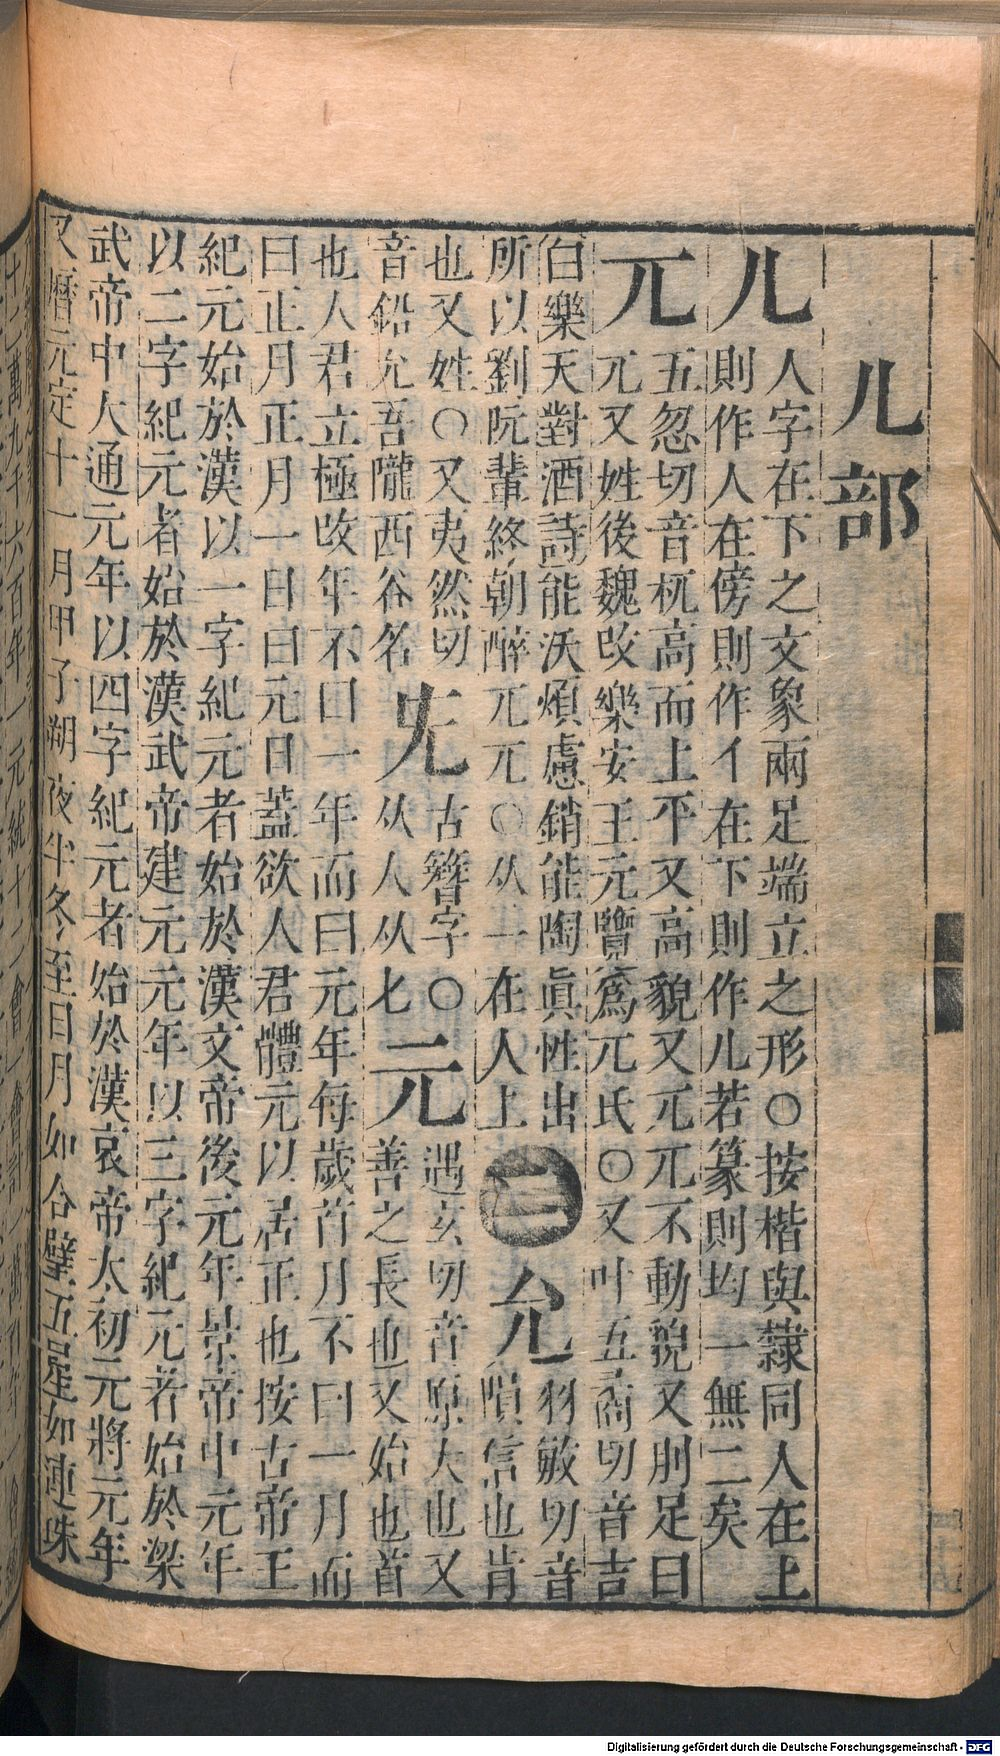 儿部
儿人字在下之文象兩足端立之形〇按楷與隷同人在上
則作人在傍則作亻在下則作儿若篆則均一無二矣
兀五忽切音杌高而上平又高貌又兀兀不動貌又刖足曰
兀又姓後魏改樂安王元覽爲兀氏〇又叶五啇切音吉
白樂天對酒詩能沃煩慮銷能陶眞性出
所以劉阮輩終朝醉兀兀〇从一在人上
二
允羽敏切音
隕信也肯
也又姓〇又夷然切
音鉛允吾隴西谷名
兂古簪字〇
从人从匕
元遇玄切音原大也又
善之長也又始也首
也人君立極改年不曰一年而曰元年每歲首月不曰一月而
曰正月正月一日曰元日蓋欲人君體元以居正也按古帝王
紀元始於漢以一字紀元者始於漢文帝後元年景帝中元年
以二字紀元者始於漢武帝建元元年以三字紀元者始於梁
武帝中大通元年以四字紀元者始於漢哀帝太初元將元年
又曆元定十一月甲子朔夜半冬至日月如合璧五星如連珠
Digitalisierung gefördert durch die Deutsche Forschungsgemeinschaft - DFG